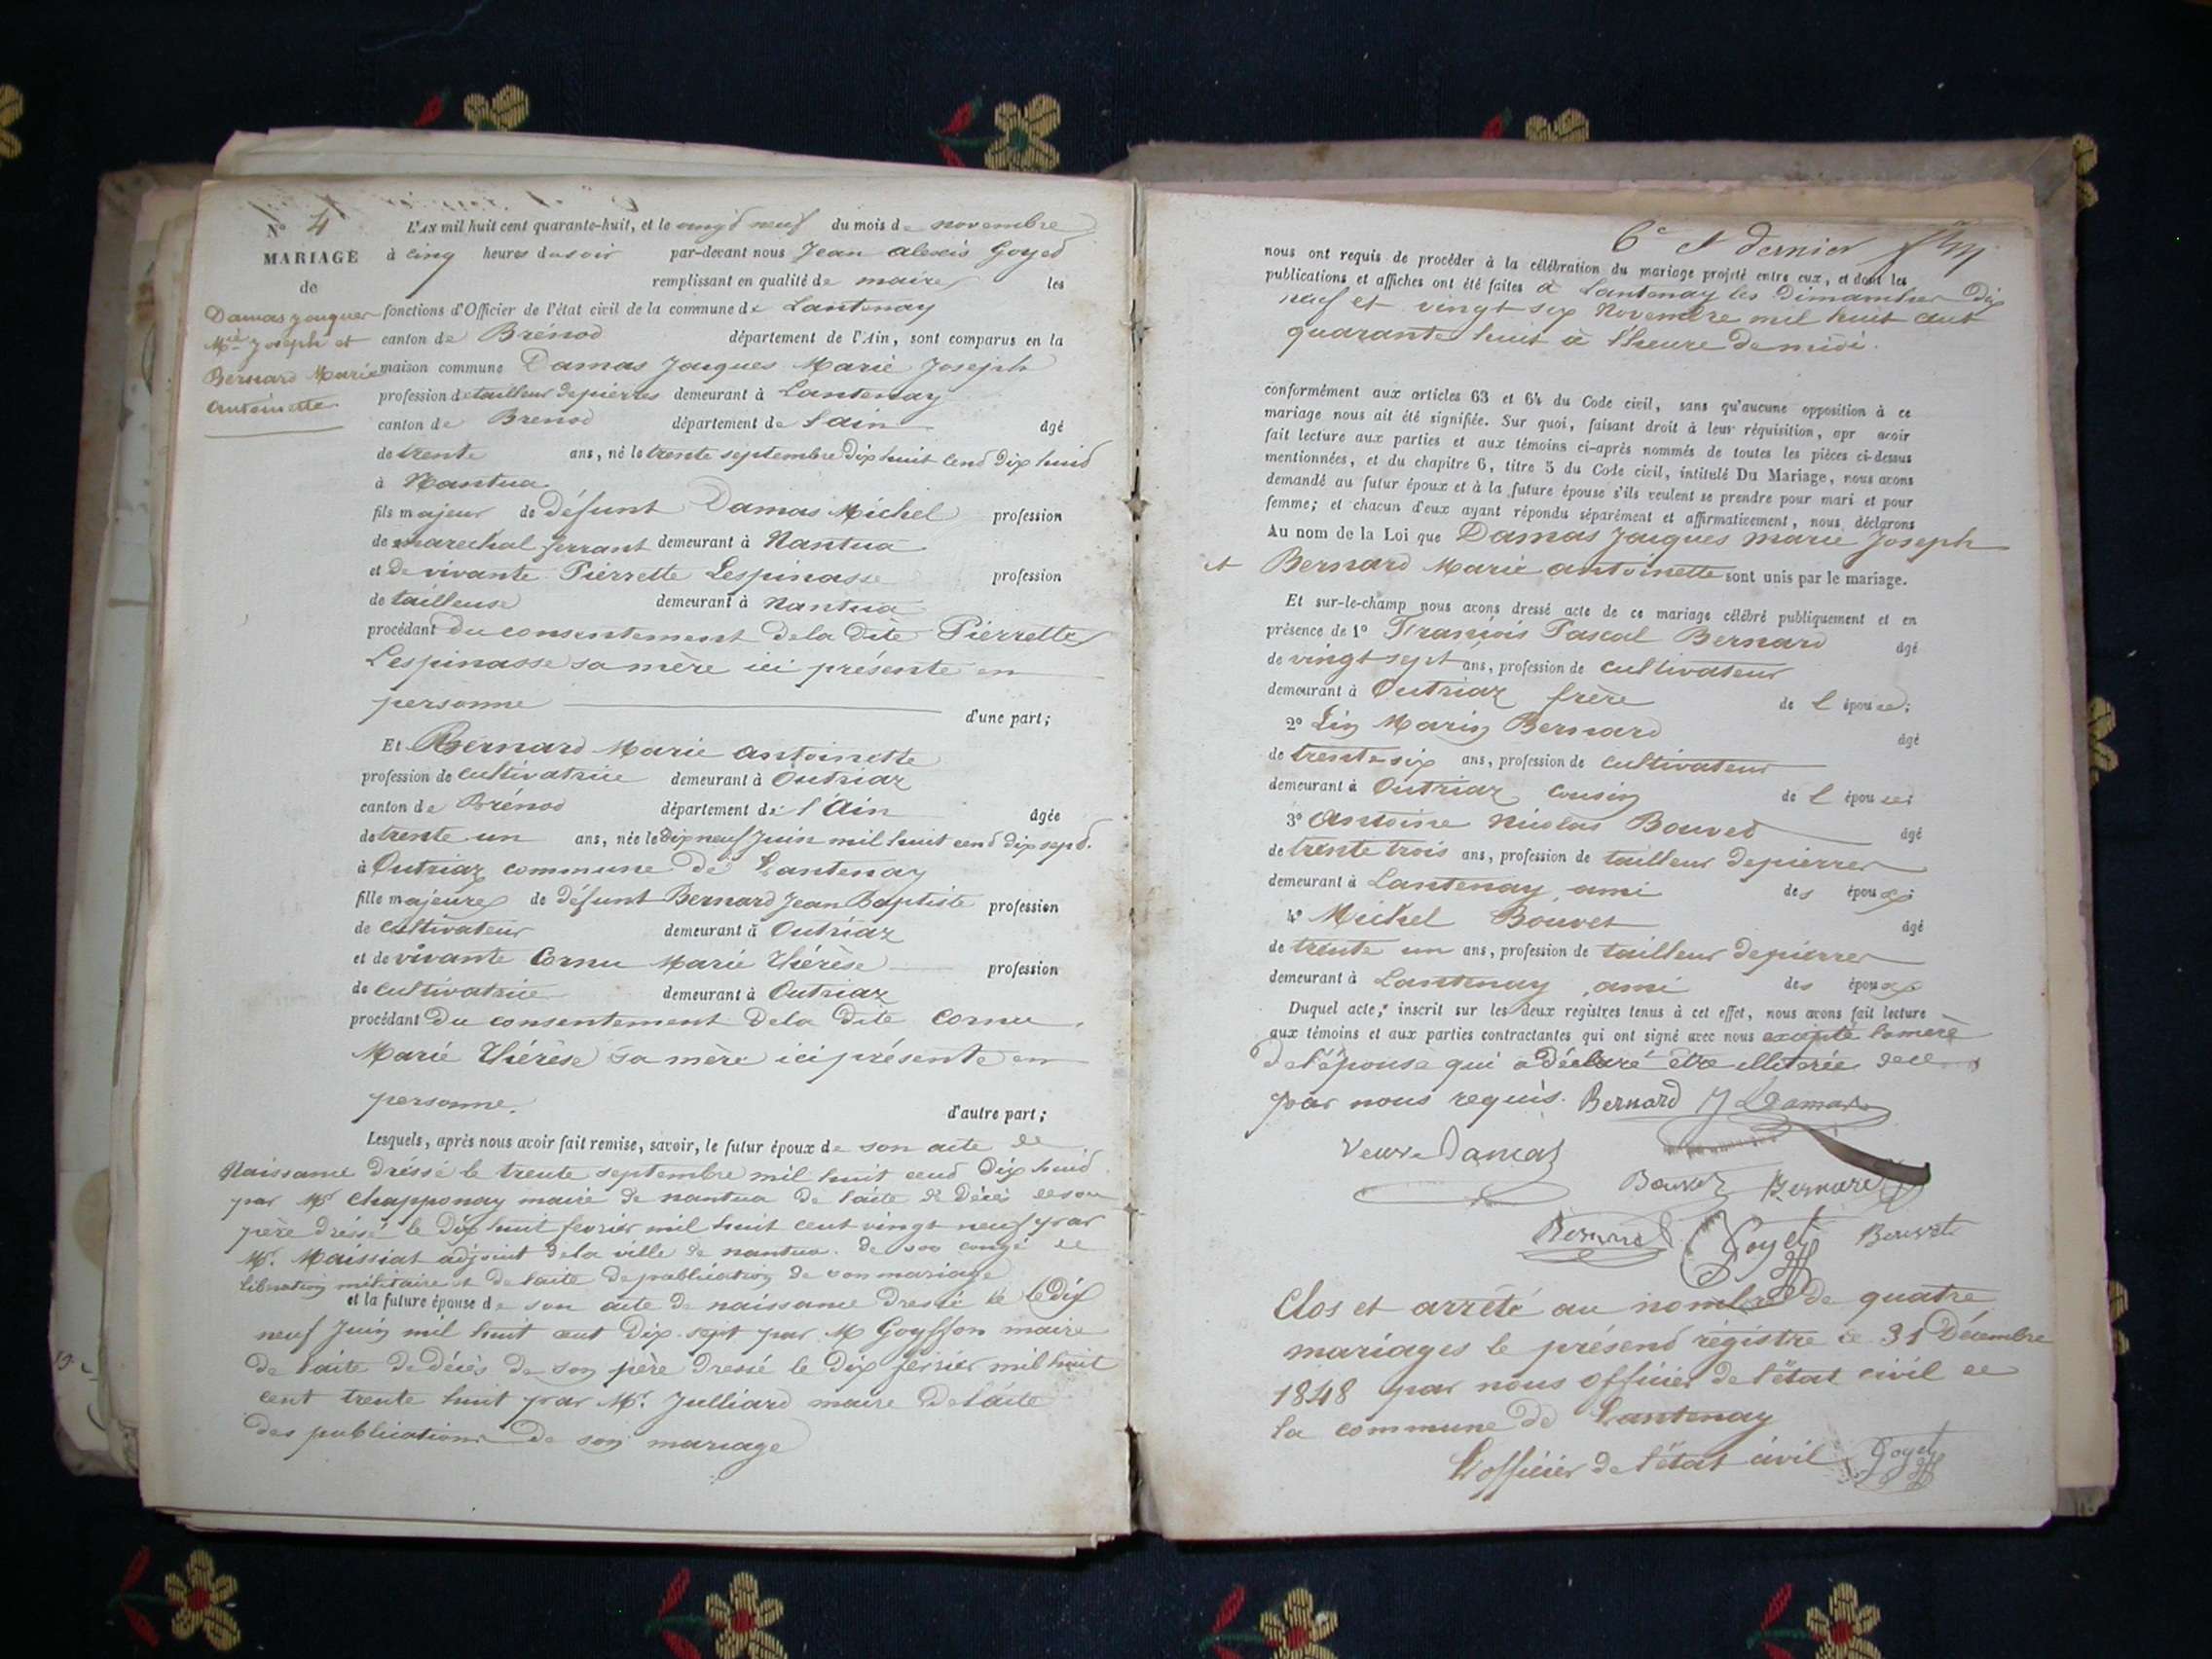 N° 4
MARIAGE
de
Damas Jacques
Mie Joseph et
Bernard Marie
Antoinette
L'AN mil huit cent quarante-huit, et le vingt neuf du mois de novembre
à cinq heures du soir par-devant nous Jean Alexis Goyet
remplissant en qualité de maire les
fonctions d'Officier de l'état civil de la commune de Lantenay
canton de Brénod département de l'Ain, sont comparus en la
maison commune Damas Jacques Marie Joseph
profession de tailleur de pierres demeurant à Lantenay
canton de Brenod département de l'ain âgé
de trente ans, né le trente septembre dix huit cend dix huid
à Nantua
fils majeur de défunt Damas Michel profession
de marechal ferrant demeurant à Nantua
et de vivante Pierrette Lespinasse profession
de tailleuse demeurant à Nantua
procédant du consentement de la dite Pierrette
Lespinasse sa mère ici présente en
personne d'une part;
Et Bernard Marie antoinette
profession de cultivatrice demeurant à Outriaz
canton de Brénod département de l'Ain âgée
de trente un ans, née le dix neuf Juin mil huit cend dix sept.
à Outriaz commune de Lantenay
fille majeure de défunt Bernard Jean Baptiste profession
de cultivateur demeurant à Outriaz
et de vivante Cornu Marie Thérèse profession
de cultivatrice demeurant à Outriaz
procédant du consentement de la dite Cornu
Marie Thérèse sa mère ici présente en
personne. d'autre part;
Lesquels, après nous avoir fait remise, savoir, le futur époux de son acte de
Naissance dréssé le trente septembre mil huit cend dix huid
par Mr Chapponay maire de nantua de l'acte de décès de son
père dressé le dix huit fevrier mil huit cent vingt neuf par
Mr. Maissiat adjoint de la ville de nantua. de son congé de
libération militaire et de l'acte de publication de son mariage
et la future épouse de son acte de naissance dressé le dix
neuf Juin mil huit cent dix sept par M Goyffon maire
de l'acte de décès de son père dressé le dix février mil huit
cent trente huit par Mr. Julliard maire de l'acte
des publications de son mariage
6e et dernier
nous ont requis de procéder à la célébration du mariage projeté entre eux, et dont les
publications et affiches ont été faites à Lantenay les dimanches dix
neuf et vingt six Novembre mil huit cent
quarante huit à l'heure de midi.
conformément aux articles 63 et 64 du Code civil, sans qu'aucune opposition à ce
mariage nous ait été signifiée. Sur quoi, faisant droit à leur réquisition, apr avoir
fait lecture aux parties et aux témoins ci-après nommés de toutes les pièces ci-dessus
mentionnées, et du chapitre 6, titre 5 du Code civil, intitulé Du Mariage, nous avons
demandé au futur époux et à la future épouse s'ils veulent se prendre pour mari et pour
femme; et chacun d'eux ayant répondu séparément et affirmativement, nous déclarons
Au nom de la Loi que Damas Jacques marie Joseph
et Bernard Marie antoinette sont unis par le mariage.
Et sur-le-champ nous avons dressé acte de ce mariage célébré publiquement et en
présence de 1° François Pascal Bernard âgé
de vingt sept ans, profession de cultivateur
demeurant à Outriaz frère de l'épouse;
2° Lin Marin Bernard âgé
de trente six ans, profession de cultivateur
demeurant à Outriaz cousin de l'épouse;
3° Antoine Nicolas Bouvet âgé
de trente trois ans, profession de tailleur de pierres
demeurant à Lantenay ami des époux;
4° Michel Bouvet âgé
de trente un ans, profession de tailleur de pierres
demeurant à Lantenay ami des époux
Duquel acte, inscrit sur les deux registres tenus à cet effet, nous avons fait lecture
aux témoins et aux parties contractantes qui ont signé avec nous excepté la mère
de l'épouse qui a déclaré être illiterée de ce
par nous requis. Bernard J Damas
Veuve Damas
Bouvet Bernard
Bernard Goyet Bouvet
Clos et arrêté au nombre de quatre
mariages le présend régistre ce 31 Décembre
1848 par nous officier de l'état civil de
la commune de Lantenay
L'officier de l'état civil Goyet